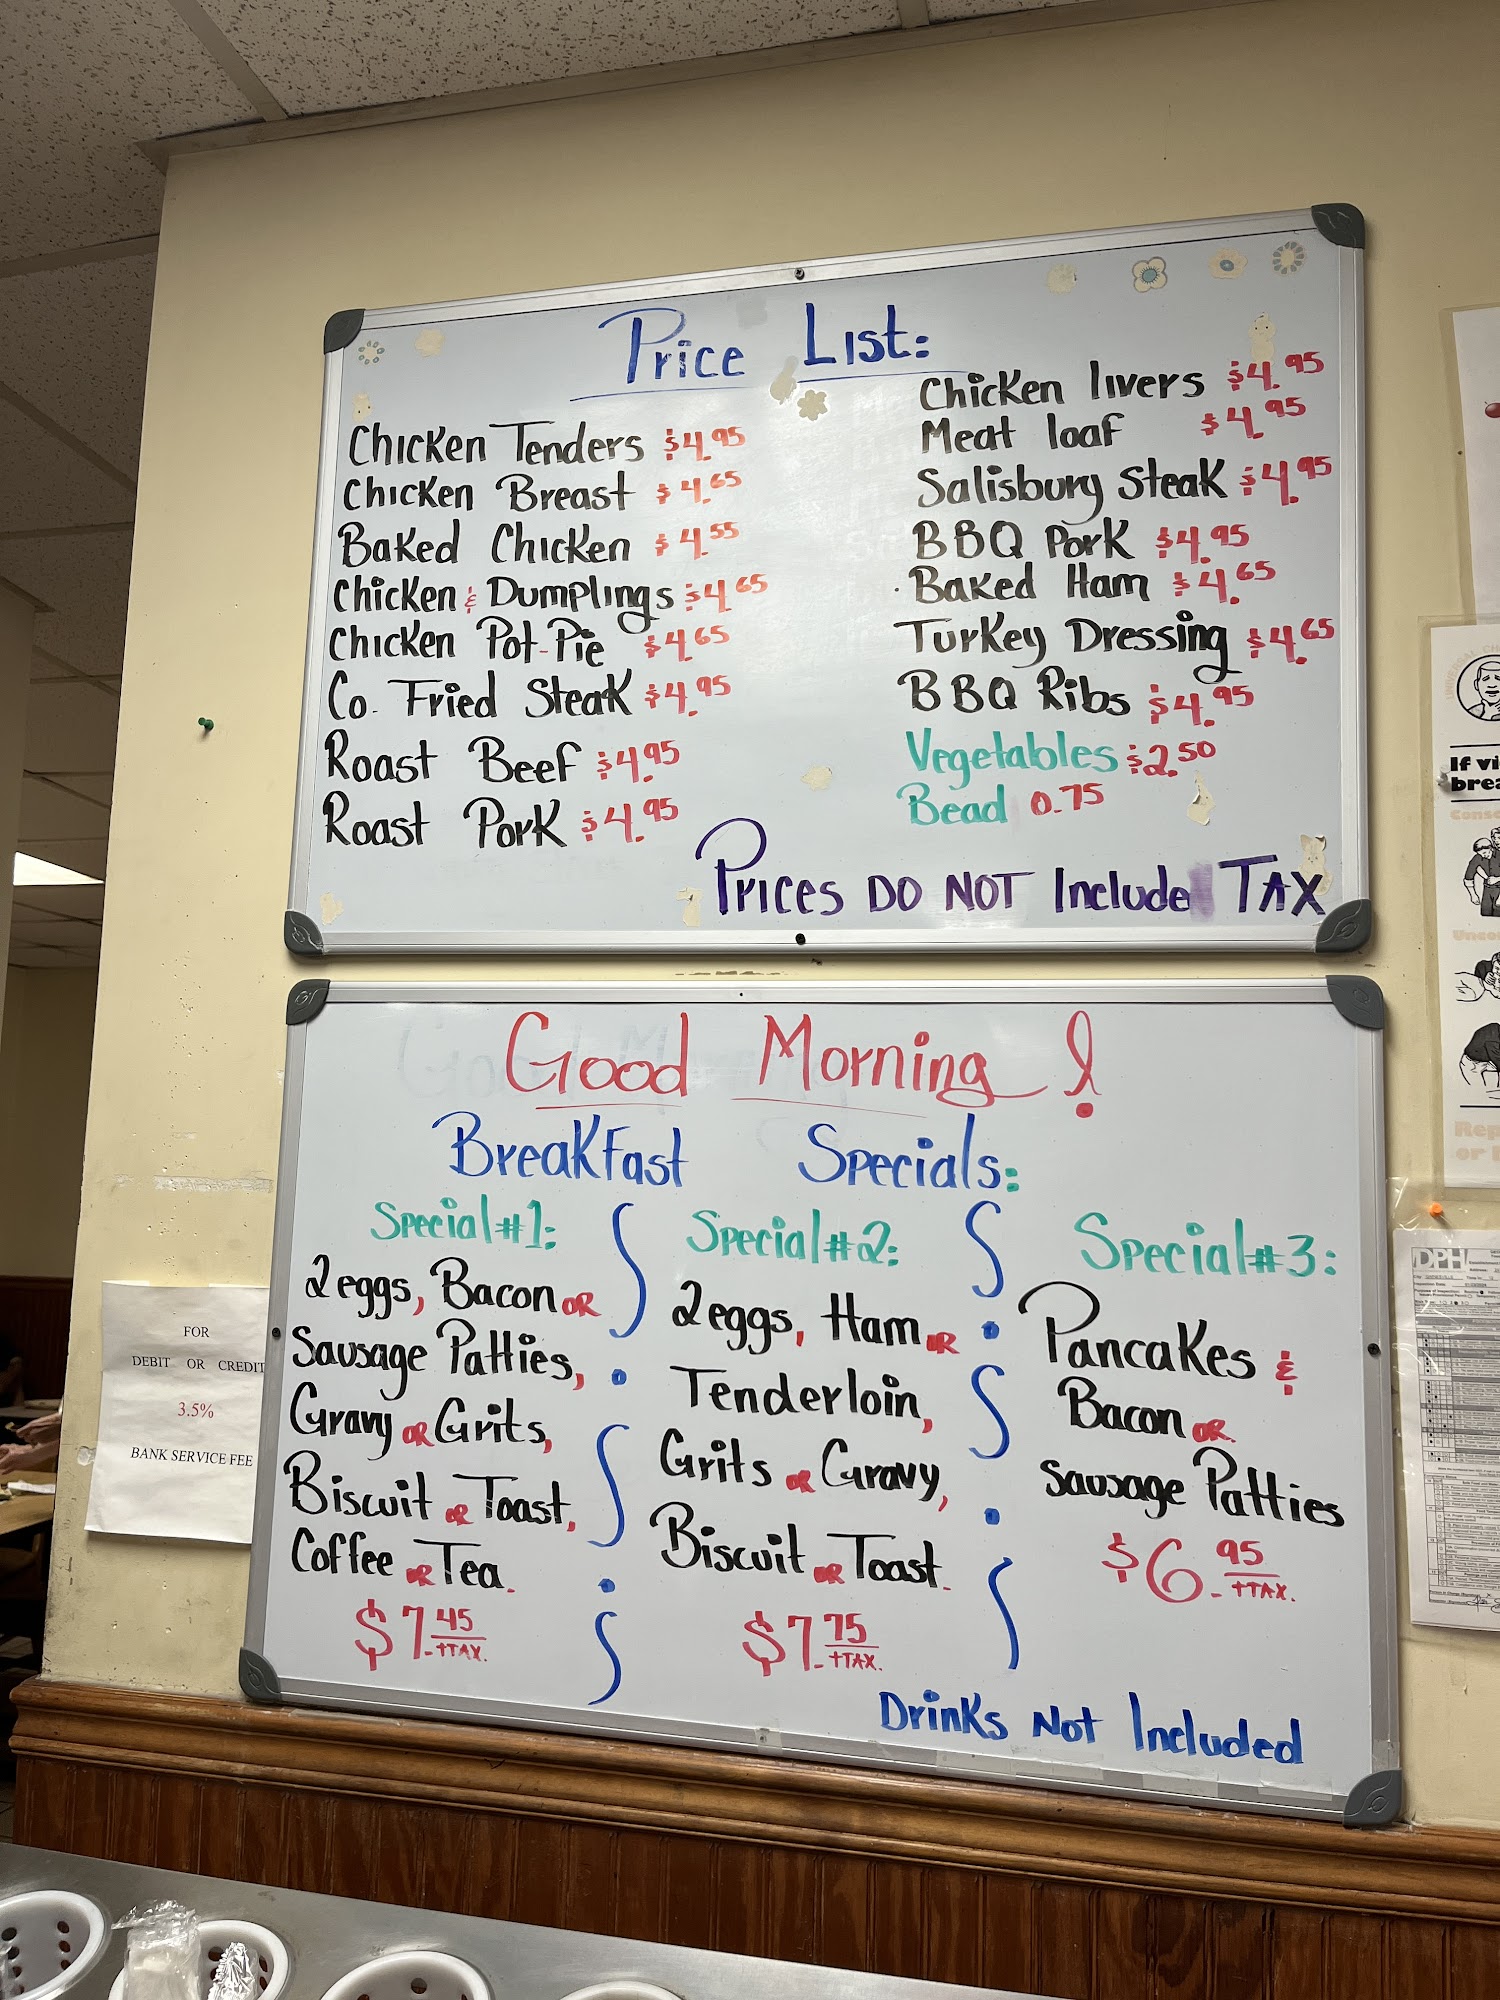 Price List:
Chicken Tenders $4.95
Chicken Breast $4.65
Baked Chicken $4.55
Chicken & Dumplings $4.65
Chicken Pot-Pie $4.65
Co. Fried Steak $4.95
Roast Beef $4.95
Roast Pork $4.95
Chicken livers $4.95
Meat loaf $4.95
Salisbury Steak $4.95
BBQ Pork $4.95
Baked Ham $4.65
Turkey Dressing $4.65
BBQ Ribs $4.95
Vegetables $2.50
Bead 0.75
Prices DO NOT Include TAX
Good Morning!
Breakfast Specials:
Special #1:
2 eggs, Bacon OR
Sausage Patties,
Gravy OR Grits,
Biscuit OR Toast,
Coffee OR Tea.
$7.45 +TAX.
Special #2:
2 eggs, Ham OR
Tenderloin,
Grits OR Gravy,
Biscuit OR Toast.
$7.75 +TAX.
Special #3:
Pancakes &
Bacon OR
Sausage Patties
$6.95 +TAX.
Drinks Not Included
FOR
DEBIT OR CREDIT
3.5%
BANK SERVICE FEE
If vi
brea
DPH